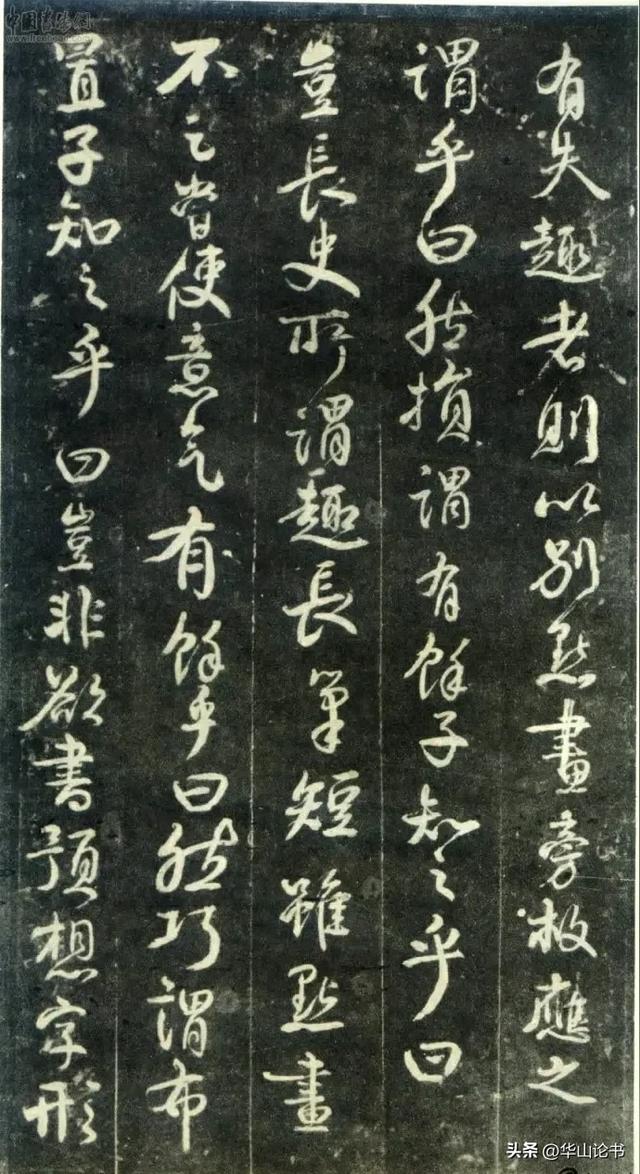 有失趣者則以別點畫旁救應之
謂乎曰然損謂有餘子知之乎曰
豈長史所謂趣長筆短雖點畫
不足嘗使意气有餘乎曰然巧謂布
置子知之乎曰豈非欲書預想字形
中国書法網
头条 @华山论书